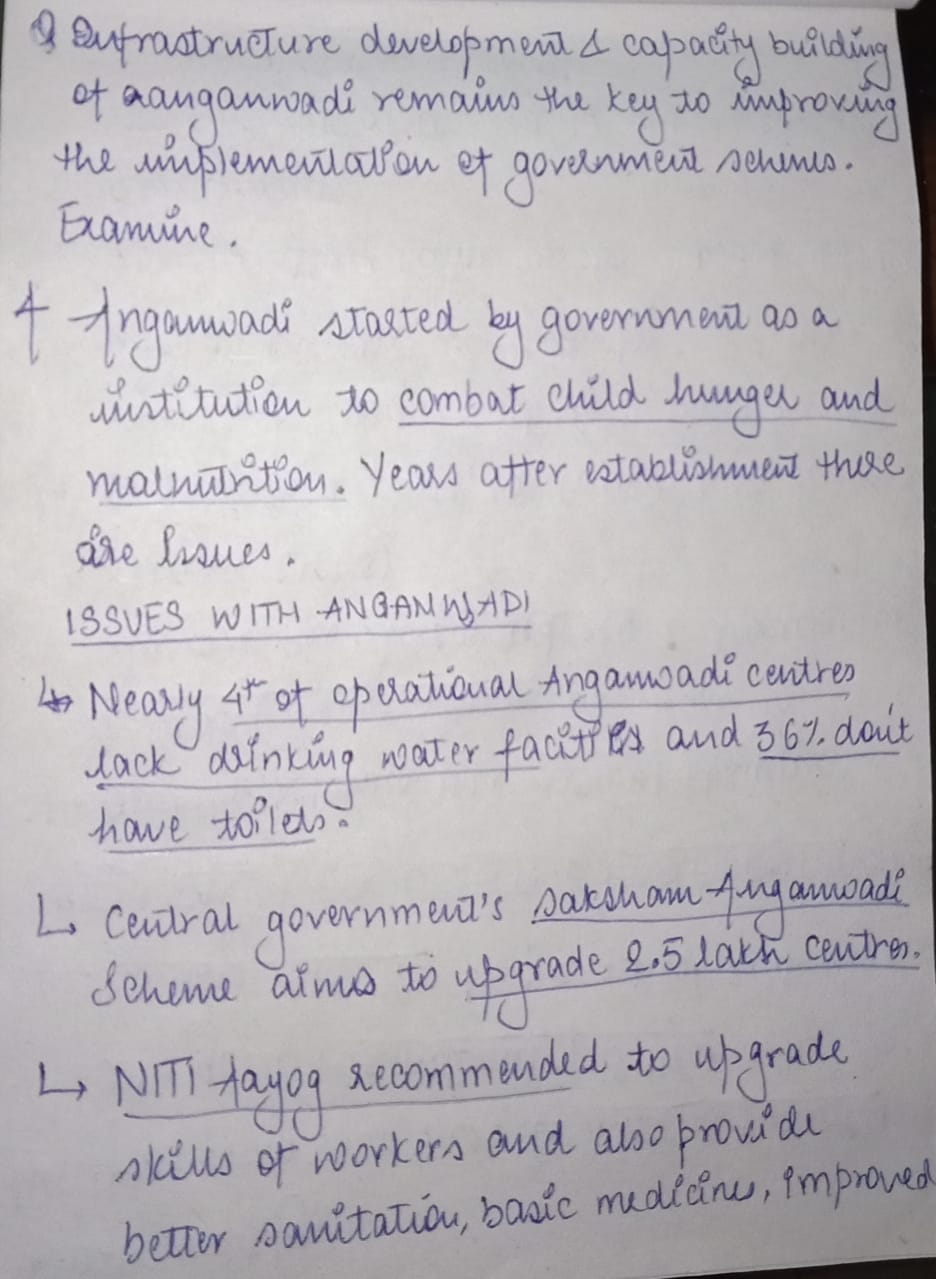 Q Infrastructure development & capacity building
of aanganwadi remains the key to improving
the implementation of government schemes.
Examine.
Anganwadi started by government as a
institution to combat child hunger and
malnutrition. Years after establishment there
are issues.
ISSUES WITH ANGANWADI
↳ Nearly 4th of operational Anganwadi centres
lack drinking water facities and 36% don't
have toilets.
↳ Central government's saksham Anganwadi
Scheme aims to upgrade 2.5 lakh centres.
↳ NITI Aayog recommended to upgrade
skills of workers and also provide
better sanitation, basic medicines, improved